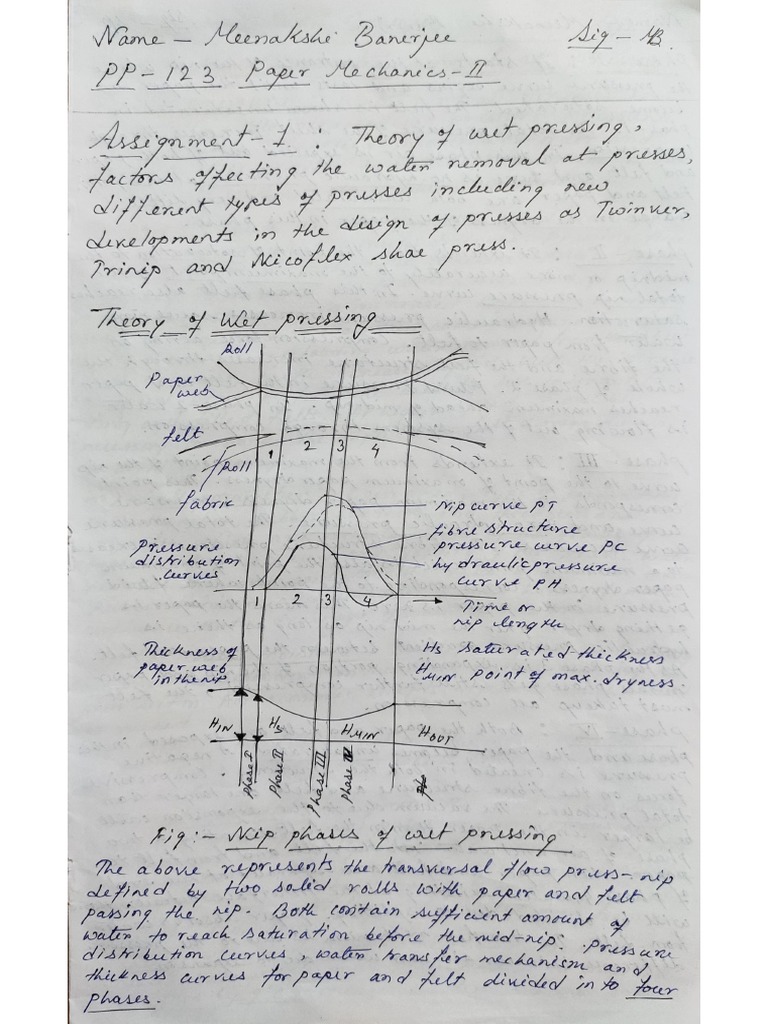 Name - Meenakshi Banerjee Sig - MB.
PP-123 Paper Mechanics-II
Assignment-1 : Theory of wet pressing,
factors affecting the water removal at presses,
different types of presses including new
developments in the design of presses as Twinver,
Trinip and Nicoflex shoe press.
Theory of Wet pressing
Roll
Paper
web
felt
1 2 3 4
Roll
fabric
Nip curve PT
fibre structure
pressure curve PC
hydraulic pressure
curve PH
Pressure
distribution
curves
1 2 3 4
Time or
nip length
Thickness of
paper web
in the nip
Hs saturated thickness
HMIN point of max. dryness.
HIN Hs HMIN HOUT
Phase I Phase II Phase III Phase IV
Fig:- Nip phases of wet pressing
The above represents the transversal flow press-nip
defined by two solid rolls with paper and felt
passing the nip. Both contain sufficient amount of
water to reach saturation before the mid-nip. Pressure
distribution curves, water transfer mechanism and
thickness curves for paper and felt divided in to four
phases.